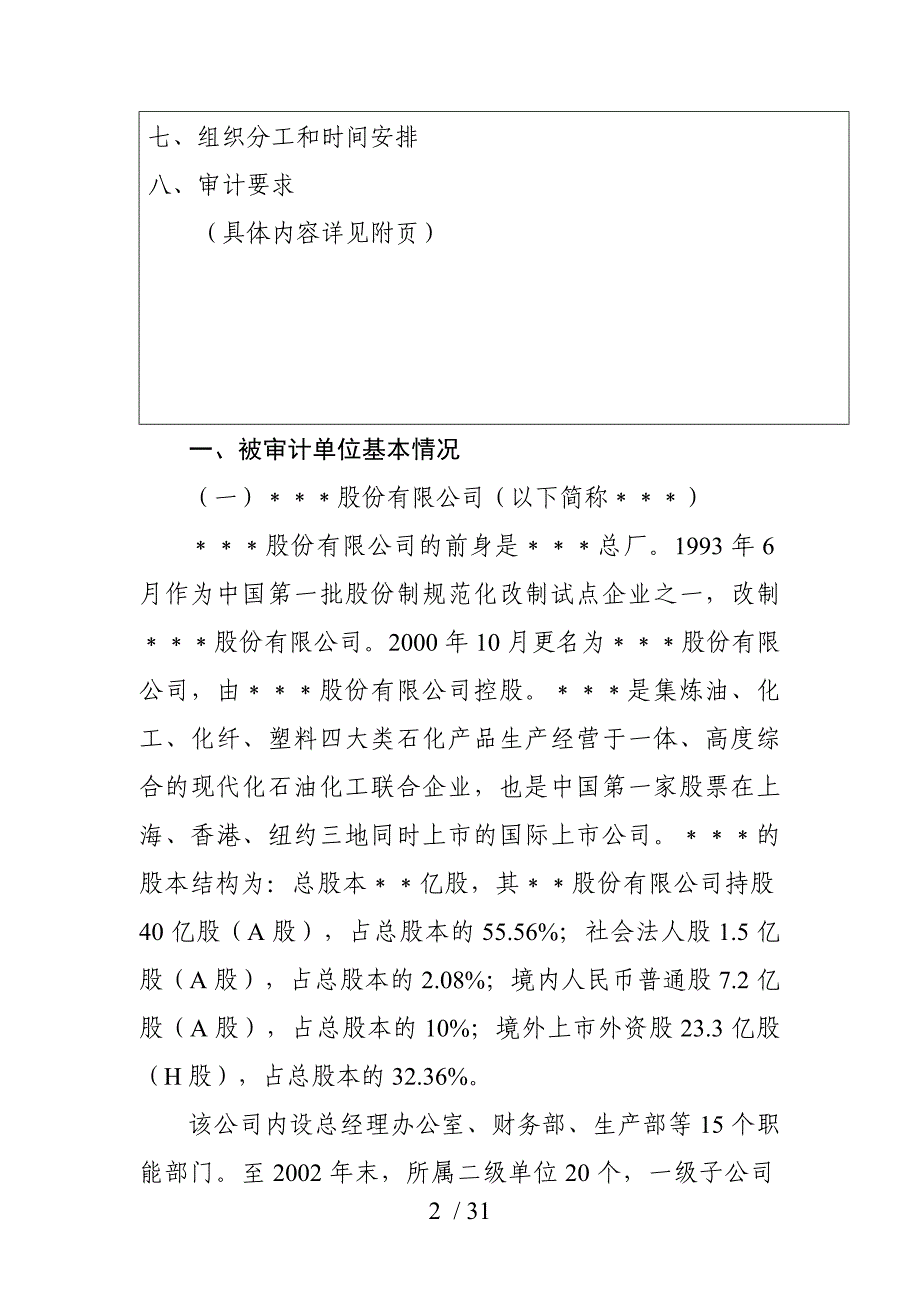 七、组织分工和时间安排
八、审计要求
（具体内容详见附页）
一、被审计单位基本情况
（一）＊＊＊股份有限公司（以下简称＊＊＊）
＊＊＊股份有限公司的前身是＊＊＊总厂。1993 年 6
月作为中国第一批股份制规范化改制试点企业之一，改制
＊＊＊股份有限公司。2000 年 10 月更名为＊＊＊股份有限
公司，由＊＊＊股份有限公司控股。＊＊＊是集炼油、化
工、化纤、塑料四大类石化产品生产经营于一体、高度综
合的现代化石油化工联合企业，也是中国第一家股票在上
海、香港、纽约三地同时上市的国际上市公司。＊＊＊的
股本结构为：总股本＊＊亿股，其＊＊股份有限公司持股
40 亿股（A 股），占总股本的 55.56%；社会法人股 1.5 亿
股（A 股），占总股本的 2.08%；境内人民币普通股 7.2 亿
股（A 股），占总股本的 10%；境外上市外资股 23.3 亿股
（H 股），占总股本的 32.36%。
该公司内设总经理办公室、财务部、生产部等 15 个职
能部门。至 2002 年末，所属二级单位 20 个，一级子公司
2 / 31